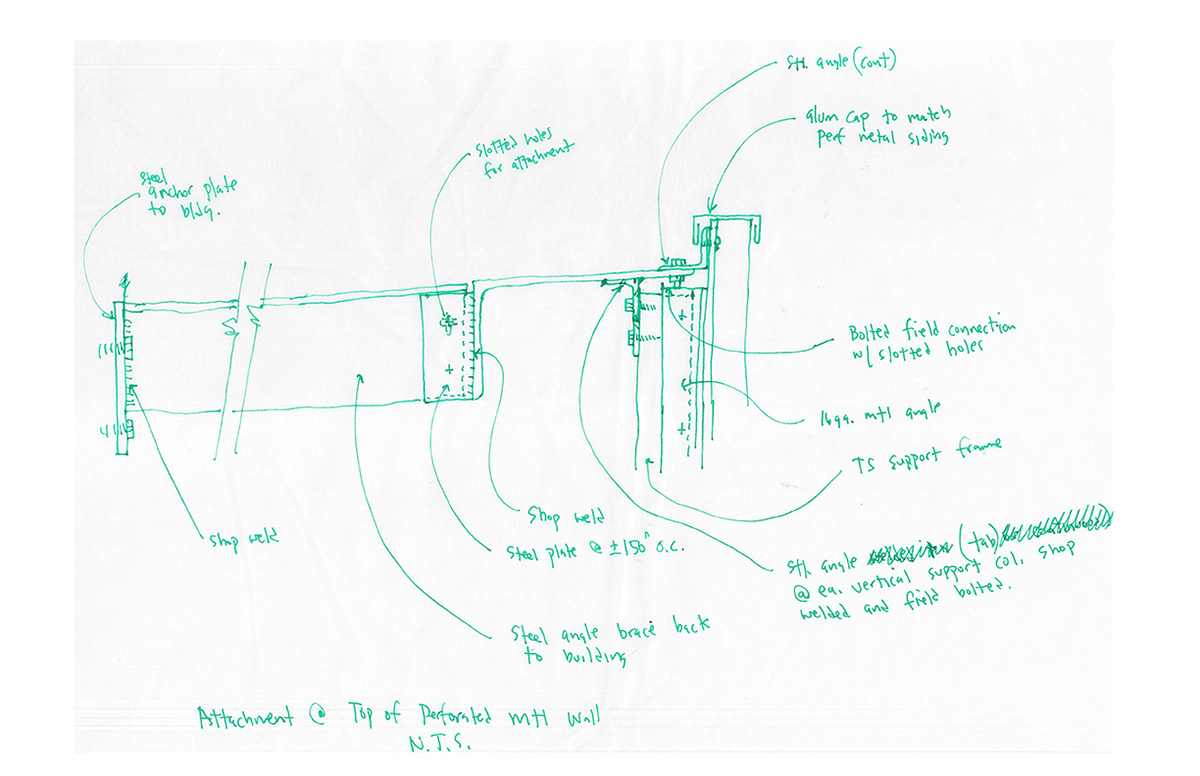 Stl. angle (cont)
alum cap to match
perf metal siding
slotted holes
for attachment
steel
anchor plate
to bldg.
Bolted field connection
w/ slotted holes
16ga. mtl angle
TS support frame
shop weld
Shop weld
Steel plate @ ±150" o.c.
Stl. angle (tab)
@ ea. vertical support col. shop
welded and field bolted.
Steel angle brace back
to building
Attachment @ Top of Perforated mtl wall
N.T.S.